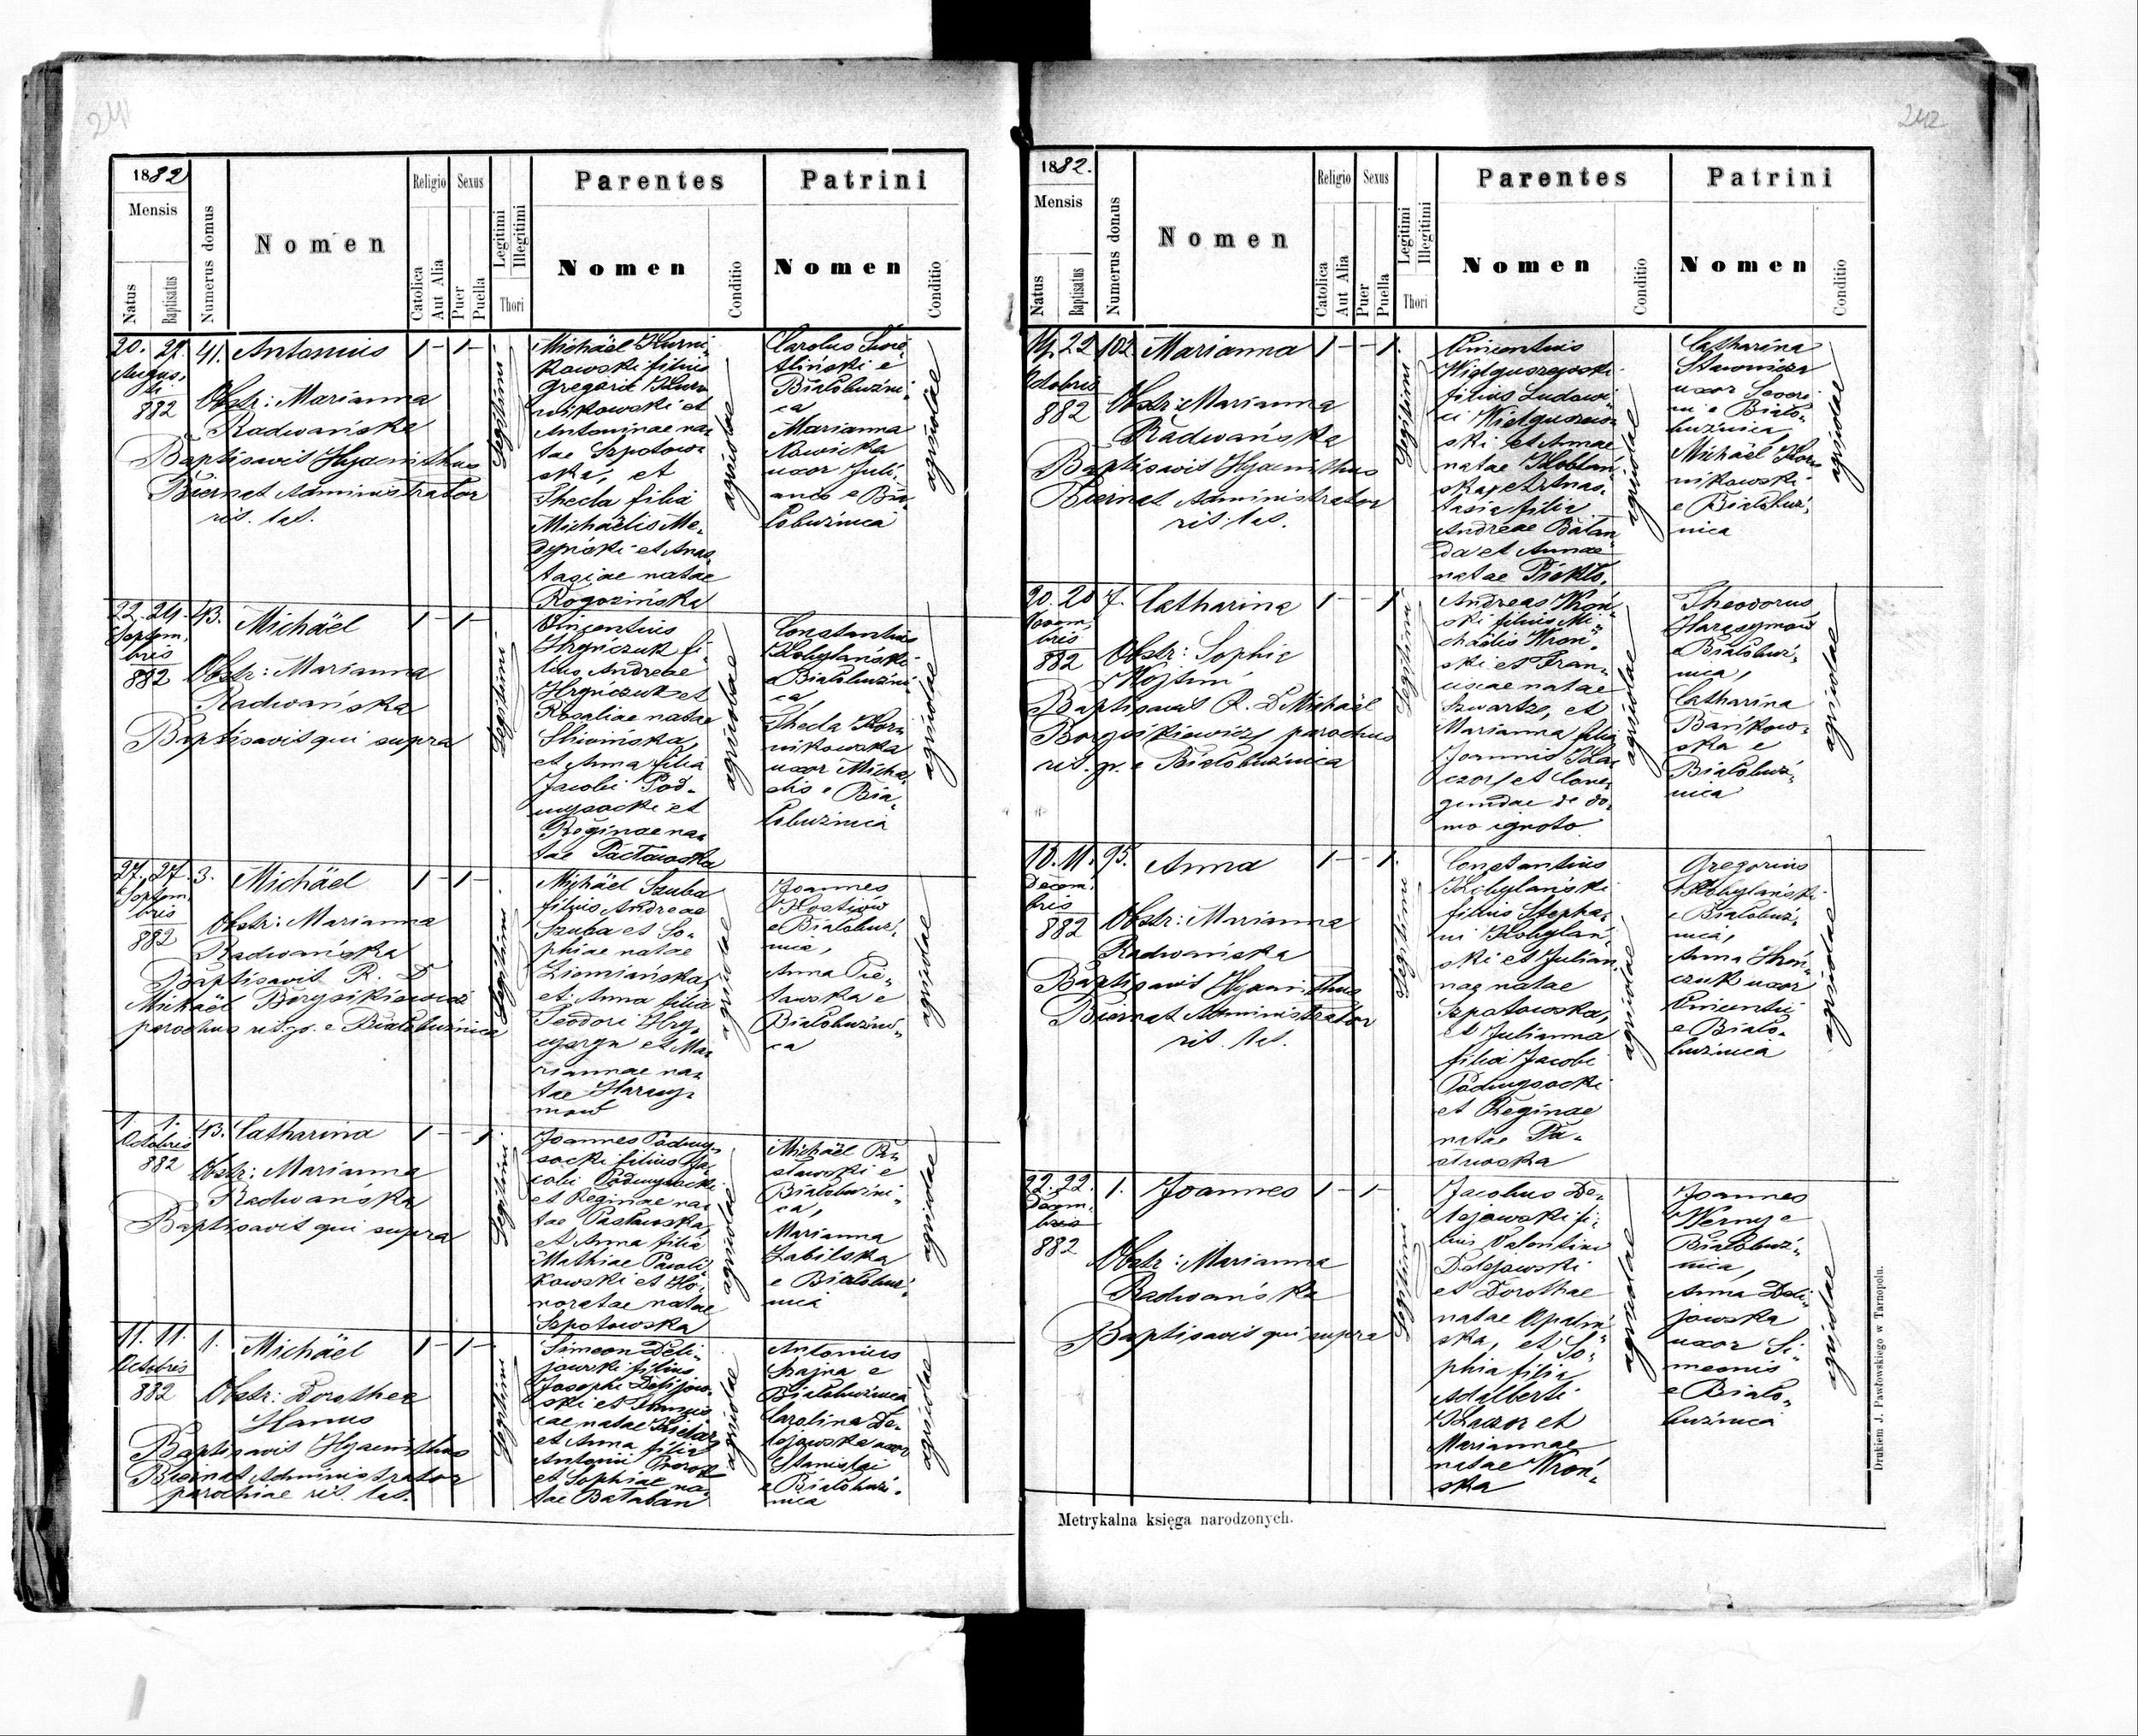 241
1882
Mensis
Natus
Baptisatus
Numerus domus
Nomen
Religio
Catolica
Aut Alia
Sexus
Puer
Puella
Legitimi
Illegitimi
Thori
Parentes
Nomen
Conditio
Patrini
Nomen
Conditio
20. 27. 41. Antonius 1 - 1 -
Augus,
ti
882
Obstr: Marianna
Radwańska
Baptisavit Hyacinthus
Biernat Administrator
rit. lat.
Legitimi
Michäel Kurni,
kowski filius
Gregorii
nikowski et
Antoninae na,
tae Szpotow,
ska, et
Thecla filia
Michäelis Me,
dyński et Anas,
tasiae natae
Rogozińska
agricolae
Carolus
e
Białobużni,
ca
Marianna
uxor Juli,
ani e Bia,
łobużnica
agricolae
22. 24. 43. Michäel 1 - 1 -
Septem,
bris
882
Obstr: Marianna
Radwańska
Baptisavit qui supra
Legitimi
Vincentius
Hryńczuk fi,
lius Andreae
Hryńczuk et
Rosaliae natae
Śliwińska,
et Anna filia
Jacobi Pod,
wysocki et
Reginae na,
tae
agricolae
Constantinus
Kobylański
e Białobużni,
ca,
Thecla Kor,
nikowska
uxor Micha,
elis e Bia,
łobużnica
agricolae
27. 27. 3. Michäel 1 - 1 -
Septem,
bris
882
Obstr: Marianna
Radwańska
Baptisavit R. D
Michäel Borysikiewicz
parochus rit. gr. e Białobużnica
Legitimi
Michäel Szuba
filius Andreae
Szuba et So,
phiae natae
Ziemiańska,
et Anna filia
Teodori
et Ma,
riannae na,
tae
agricolae
Joannes
Kostiów
e Białobuż,
nica,
Anna
e
Białobużni,
ca
agricolae
1. 1. 43. Catharina 1 - - 1
Octobris
882
Obstr: Marianna
Radwańska
Baptisavit qui supra
Legitimi
Joannes Podwy,
socki filius Ja,
cobi Podwysocki
et Reginae na,
tae Pasławska,
et Anna filia
Mathiae Pawli,
kowski et Ho,
noratae natae
Szpotowska
agricolae
Michäel Pa,
sławski e
Białobużni,
ca,
Marianna
Zabilska
e Białobuż,
nica
agricolae
11. 11. 1. Michäel 1 - 1 -
Octobris
882
Obstr: Dorothea
Hanus
Baptisavit Hyacinthus
Biernat Administrator
parochiae rit. lat.
Legitimi
Simeon Deli,
jowski filius
Josephi Delijow,
ski et
natae
et Anna filia
Antonii
et Sophiae na,
tae Bałaban
agricolae
Antonius
e
Białobużnica
Carolina De,
lejowska uxor
Stanislai
e Białobuż,
nica
agricolae
242
1882.
Mensis
Natus
Baptisatus
Numerus domus
Nomen
Religio
Catolica
Aut Alia
Sexus
Puer
Puella
Legitimi
Illegitimi
Thori
Parentes
Nomen
Conditio
Patrini
Nomen
Conditio
22 102. Marianna 1 - - 1.
Octobris
882
Obstr: Marianna
Radwańska
Baptisavit Hyacinthus
Biernat Administrator
rit: lat.
Legitimi
Vincentius
Wielguszewski
filius Ludovi,
ci Wielguszew,
ski et Annae
natae
et Anas,
tasia filia
Andreae Bałan,
da et Annae
natae
agricolae
Catharina
uxor Severi,
ni e Biało,
bużnica,
Michäel Kor,
nikowski
e Białobuż,
nica
agricolae
20. 20 7. Catharina 1 - - 1
882
Obstr: Sophia
Baptisavit R. D Michäel
Borysikiewicz parochus
rit. gr. e Białobużnica
Legitimi
Andreas Wroń,
ski filius Mi,
chäelis Wroń,
ski et Fran,
ciscae natae
Szwartze, et
Marianna filia
Joannis
et Cune,
gundae de do,
mo ignoto
agricolae
Theodorus
Harasymów
e Białobuż,
nica,
Catharina
Bańkow,
ska e
Białobuż,
nica
agricolae
10. 11. 95. Anna 1 - - 1.
Decem,
bris
882
Obstr: Marianna
Radwańska
Baptisavit Hyacinthus
Biernat Administrator
rit. lat.
Legitimi
Constantinus
Kobylański
filius Stepha,
ni Kobylań,
ski et Julian,
nae natae
Szpotowska,
et Julianna
filia Jacobi
Podwysocki
et Reginae
natae Pa,
agricolae
Gregorius
Kobylański
e Białobuż,
nica,
Anna Hryń,
czuk uxor
Vincentii
e Biało,
bużnica
agricolae
22. 22. 1. Joannes 1 - 1 -
Decem,
bris
882
Obstr: Marianna
Radwańska
Baptisavit qui supra
Legitimi
Jacobus De,
lejowski fi,
lius Valentini
Delejowski
et Dorothae
natae Opaliń,
ska, et So,
phia filia
Adalberti
Kaczor et
Mariannae
natae Wroń,
ska
agricolae
Joannes
Werny e
Białobuż,
nica,
Anna Deli,
jowska
uxor Si,
meonis
e Biało,
bużnica
agricolae
Metrykalna księga narodzonych.
Drukiem J. Pawłowskiego w Tarnopolu.